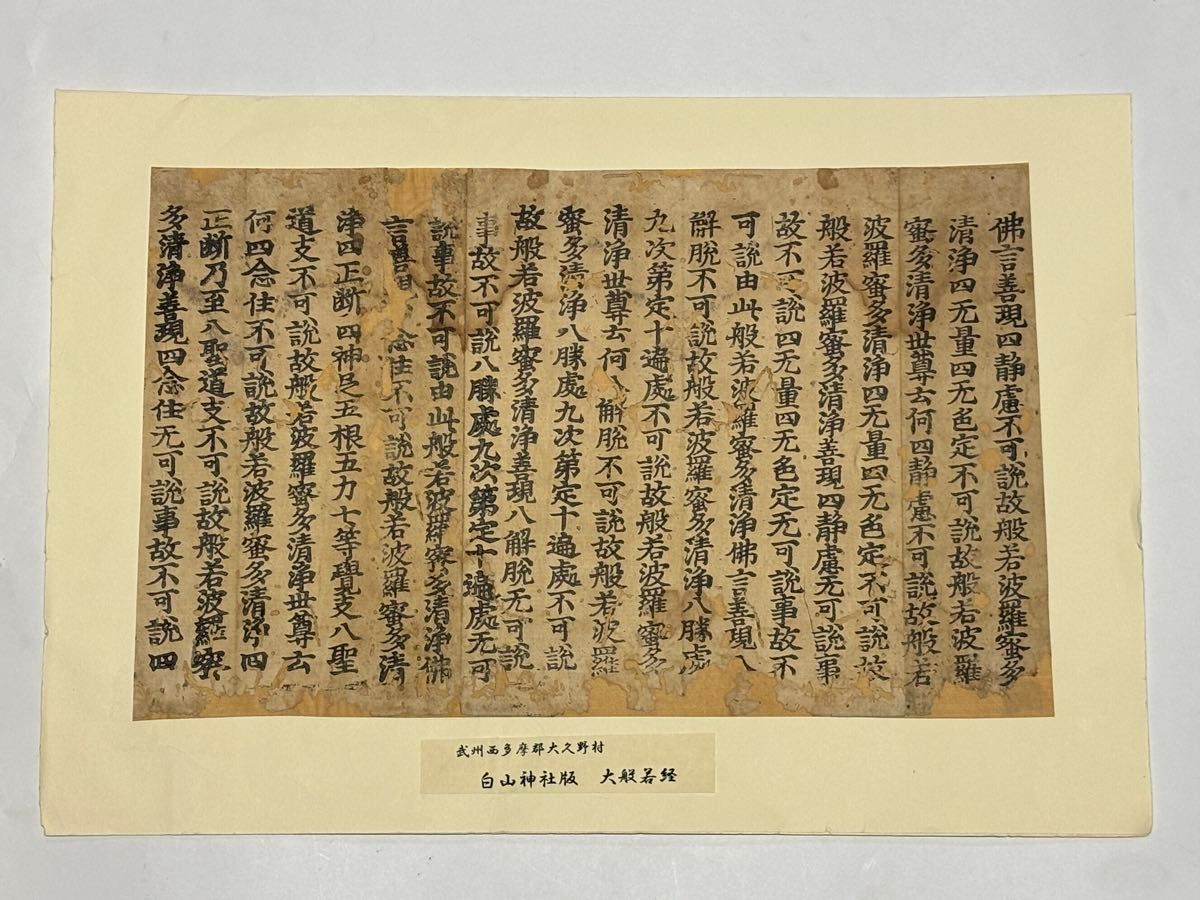 佛言善現四静慮不可說故般若波羅蜜多
清淨四无量四无色定不可說故般若波羅
蜜多清淨世尊云何四静慮不可說故般若
波羅蜜多清淨四无量四无色定不可說故
般若波羅蜜多清淨善現四静慮无可說事
故不可說四无量四无色定无可說事故不
可說由此般若波羅蜜多清淨佛言善現八
解脫不可說故般若波羅蜜多清淨八勝處
九次第定十遍處不可說故般若波羅蜜多
清淨世尊云何八解脫不可說故般若波羅
蜜多清淨八勝處九次第定十遍處不可說
故般若波羅蜜多清淨善現八解脫无可說
事故不可說八勝處九次第定十遍處无可
說事故不可說由此般若波羅蜜多清淨佛
言善現念住不可說故般若波羅蜜多清
淨四正断四神足五根五力七等覺支八聖
道支不可說故般若波羅蜜多清淨世尊云
何四念住不可說故般若波羅蜜多清淨四
正断乃至八聖道支不可說故般若波羅蜜
多清淨善現四念住无可說事故不可說四
武州西多摩郡大久野村
白山神社版 大般若経